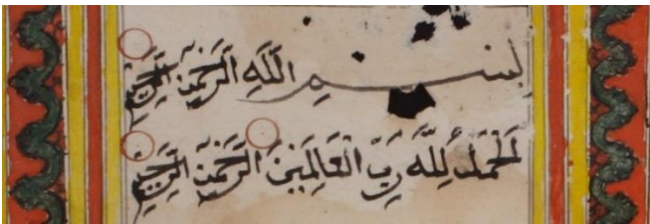 بِسْمِ اللَّهِ الرَّحْمَنِ الرَّحِيمِ
الْحَمْدُ لِلَّهِ رَبِّ الْعَالَمِينَ الرَّحْمَنِ الرَّحِيمِ